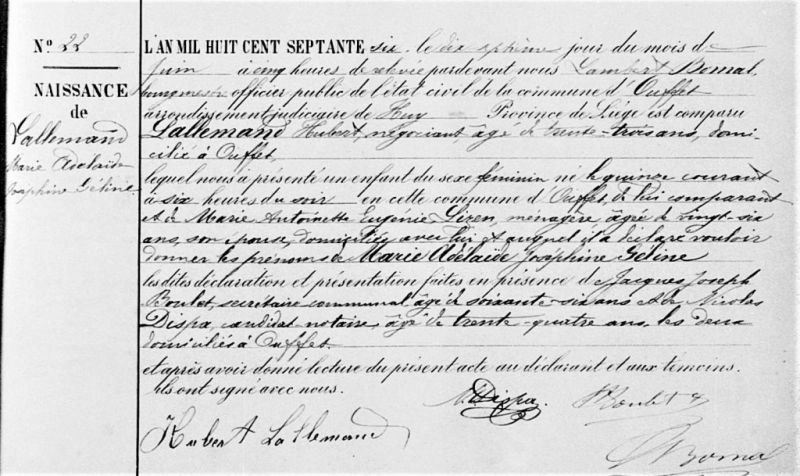 No 22
NAISSANCE
de
Lallemand
Marie Adelaïde
Joséphine Géline
L'AN MIL HUIT CENT SEPTANTE six le dix septième jour du mois d
Juin à cinq heures de relevée pardevant nous Lambert Bomal
bourgmestre officier public de l'état civil de la commune d'Ouffet
arrondissement judiciaire de Huy Province de Liége est comparu
Lallemand Hubert, négociant, âgé de trente-trois ans, domi-
cilié à Ouffet,
lequel nous a présenté un enfant du sexe féminin né le quinze courant
à six heures du soir en cette commune d'Ouffet de lui comparant
et de Marie Antoinette Eugenie Lizen, ménagère âgée de vingt-six
ans, son épouse, domiciliée avec lui et auquel il a déclaré vouloir
donner les prénoms de Marie Adélaïde Joséphine Géline
les dites déclaration et présentation faites en présence de Jacques Joseph
Boulet, secrétaire communal âgé de soixante-six ans et de Nicolas
Dispa, candidat notaire, âgé de trente-quatre ans, les deux
domiciliés à Ouffet
et après avoir donné lecture du présent acte au déclarant et aux témoins.
Ils ont signé avec nous.
N. Dispa. Boulet
Hubert Lallemand
Bomal